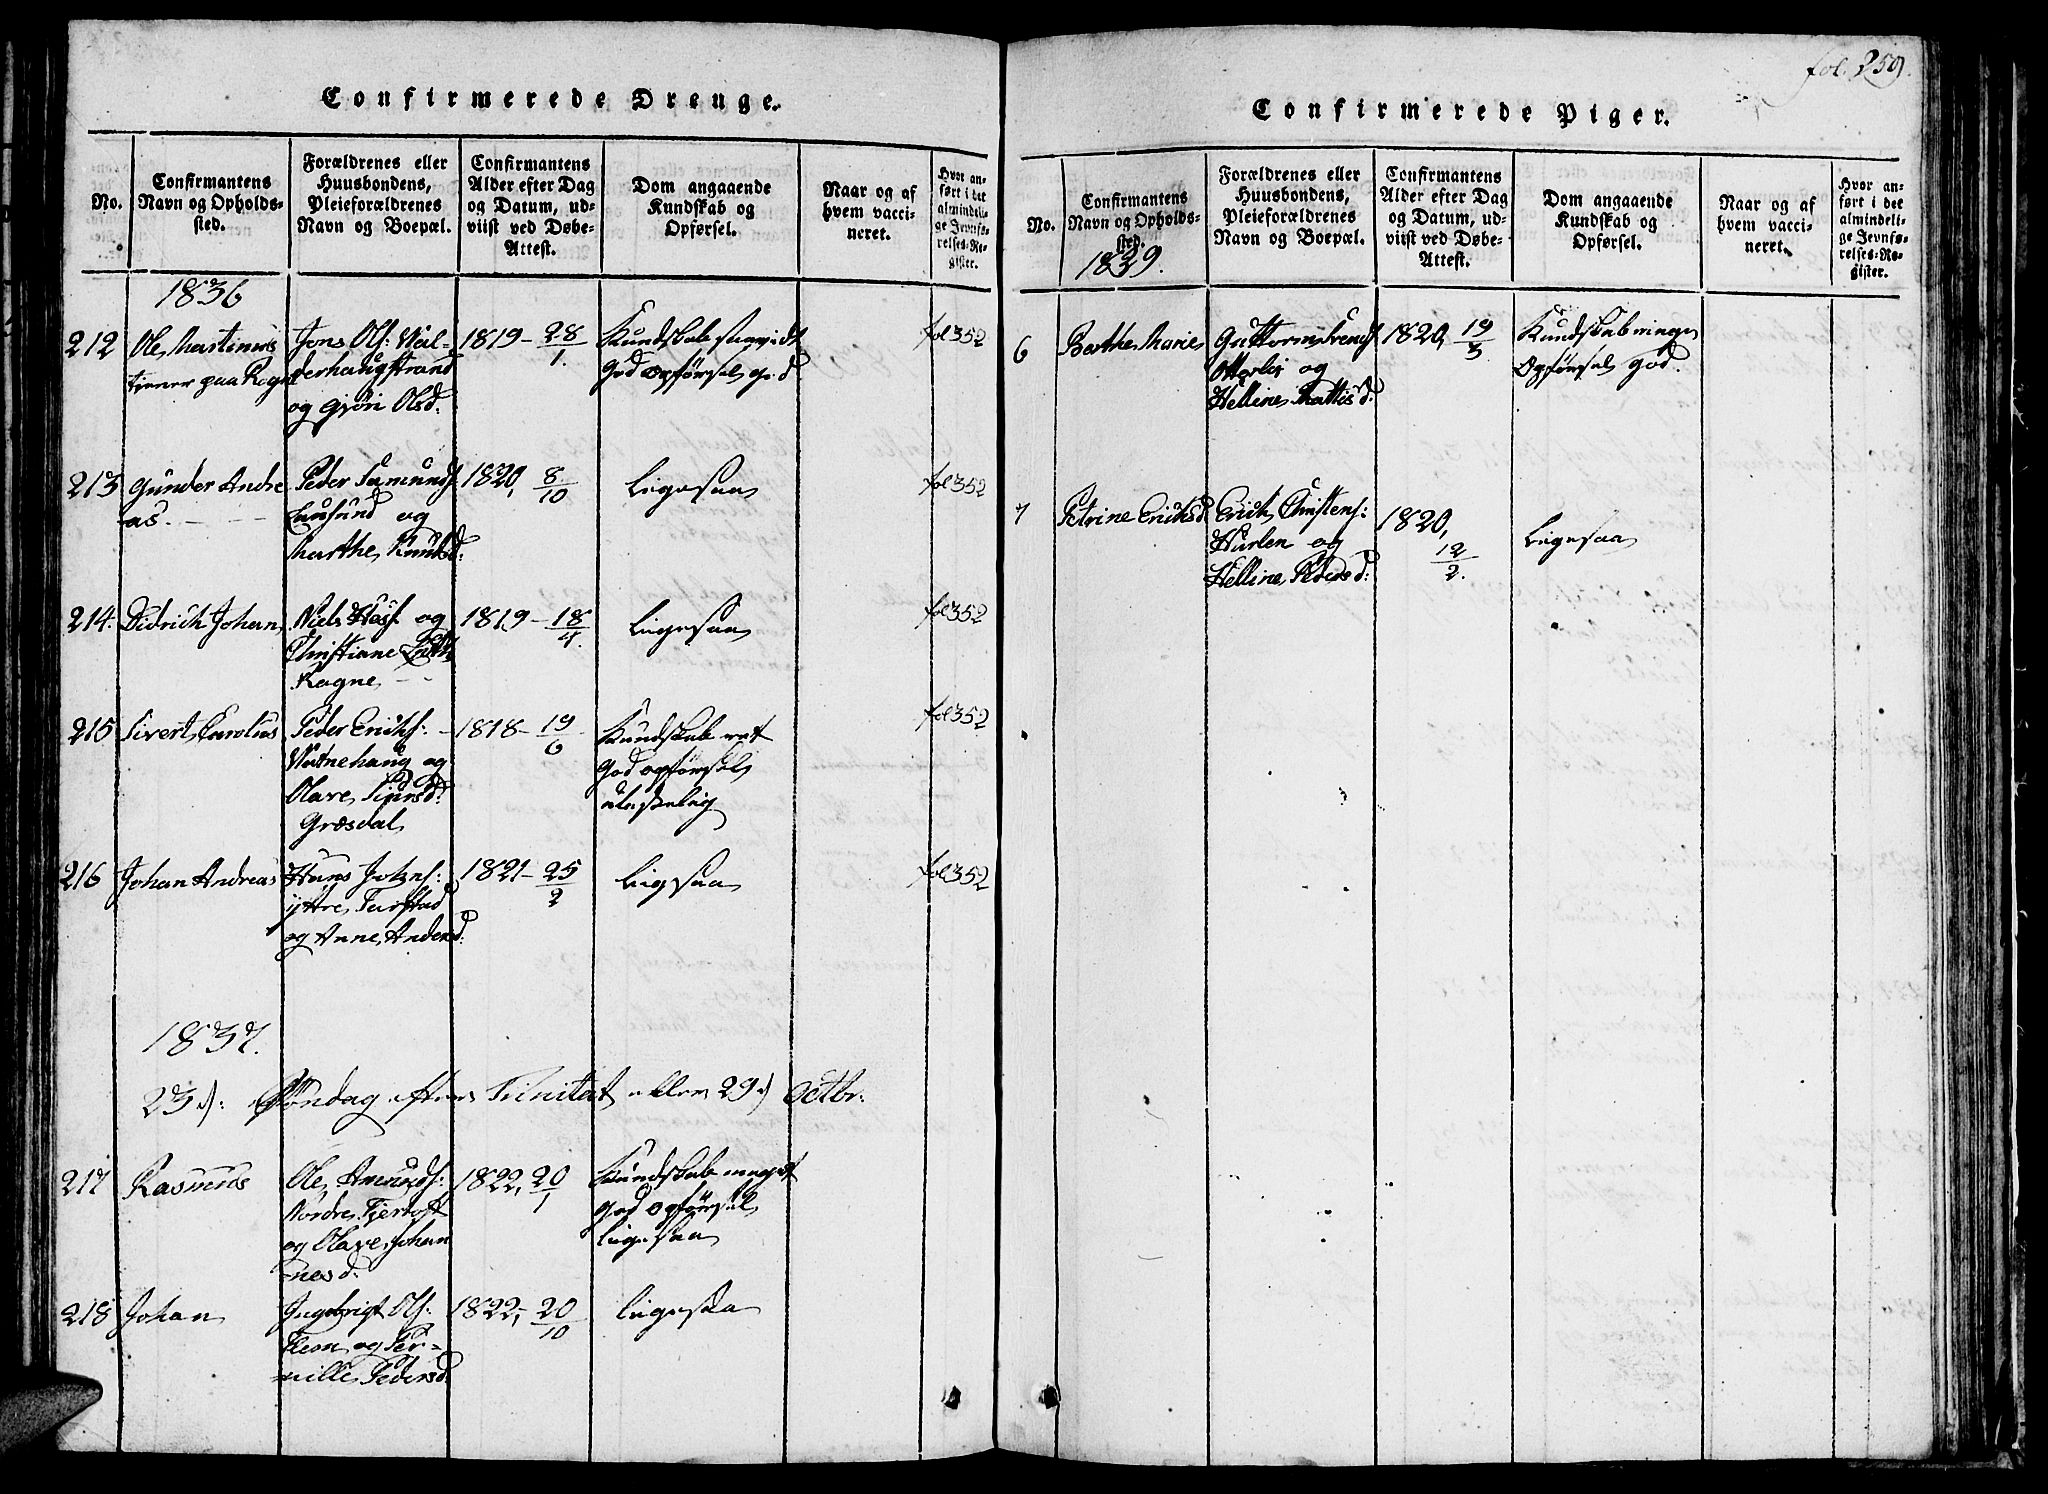 Confirmerede Drenge.
No.
Confirmantens
Navn og Opholds-
sted.
Forældrenes eller
Huusbondens,
Pleieforældrenes
Navn og Boepæl.
Confirmantens
Alder efter Dag
og Datum, ud-
viist ved Døbe-
Attest.
Dom angaaende
Kundskab og
Opførsel.
Naar og af
hvem vacci-
neret.
Hvor an-
ført i det
almindeli-
ge Jevnfø-
relses-Re-
gister.
1836
212
Ole Martinus
tiener paa Rogne
Jons Ols:
derhaugstrand
og Gjøri Olsd:
1819 - 28/1.
Kundskab
God opførsel god
fol 352
213
Gunder Andre
as. - -
Peder Samunds
og
Marthe Knudsd:
1820, 8/10
Ligesaa
fol 352
214.
Didrich Johan
Niels og
Christiane
Rogne - -
1819 - 18/4.
Ligesaa
fol 352
215
Sivert Carolus
Peder Erichs: -
Vatnehaug og
Olave Siursd:
Græsdal
1818 - 19/6
Kundskab
God opførsel
fol 352
216
Johan Andreas
Hans Johns:
yttre
og Anne Andersd:
1821 - 25/2
Ligesaa
fol 352
1837.
23d: Søndag efter Trinitat eller 29d Octbr:
217
Rasmus
Ole Amunds:
Nordre Fjertoft
og Olave Johan
-nesd:
1822, 20/1
Kundskab meget
God opførsel
ligesaa
218
Johan
Ingebrigt Ols:
og Per-
-nille Pedersd
1822, - 20/10
ligesaa
fol. 259.
Confirmerede Piger.
No.
Confirmantens
Navn og Opholds-
sted.
Forældrenes eller
Huusbondens,
Pleieforældrenes
Navn og Boepæl.
Confirmantens
Alder efter Dag
og Datum, ud-
viist ved Døbe-
Attest.
Dom angaaende
Kundskab og
Opførsel.
Naar og af
hvem vacci-
neret.
Hvor an-
ført i det
almindeli-
ge Jevnfø-
relses-Re-
gister.
1839.
6
Berthe Marie
Guttorm Svends
Otterlei og
Helline Mattisd:
1820, 19/3
Kundskab
Opførsel god.
7
Petrine Erichsd
Erich Christens:
Hurlen og
Helline Pedersd:
1820,
12/2.
Ligesaa